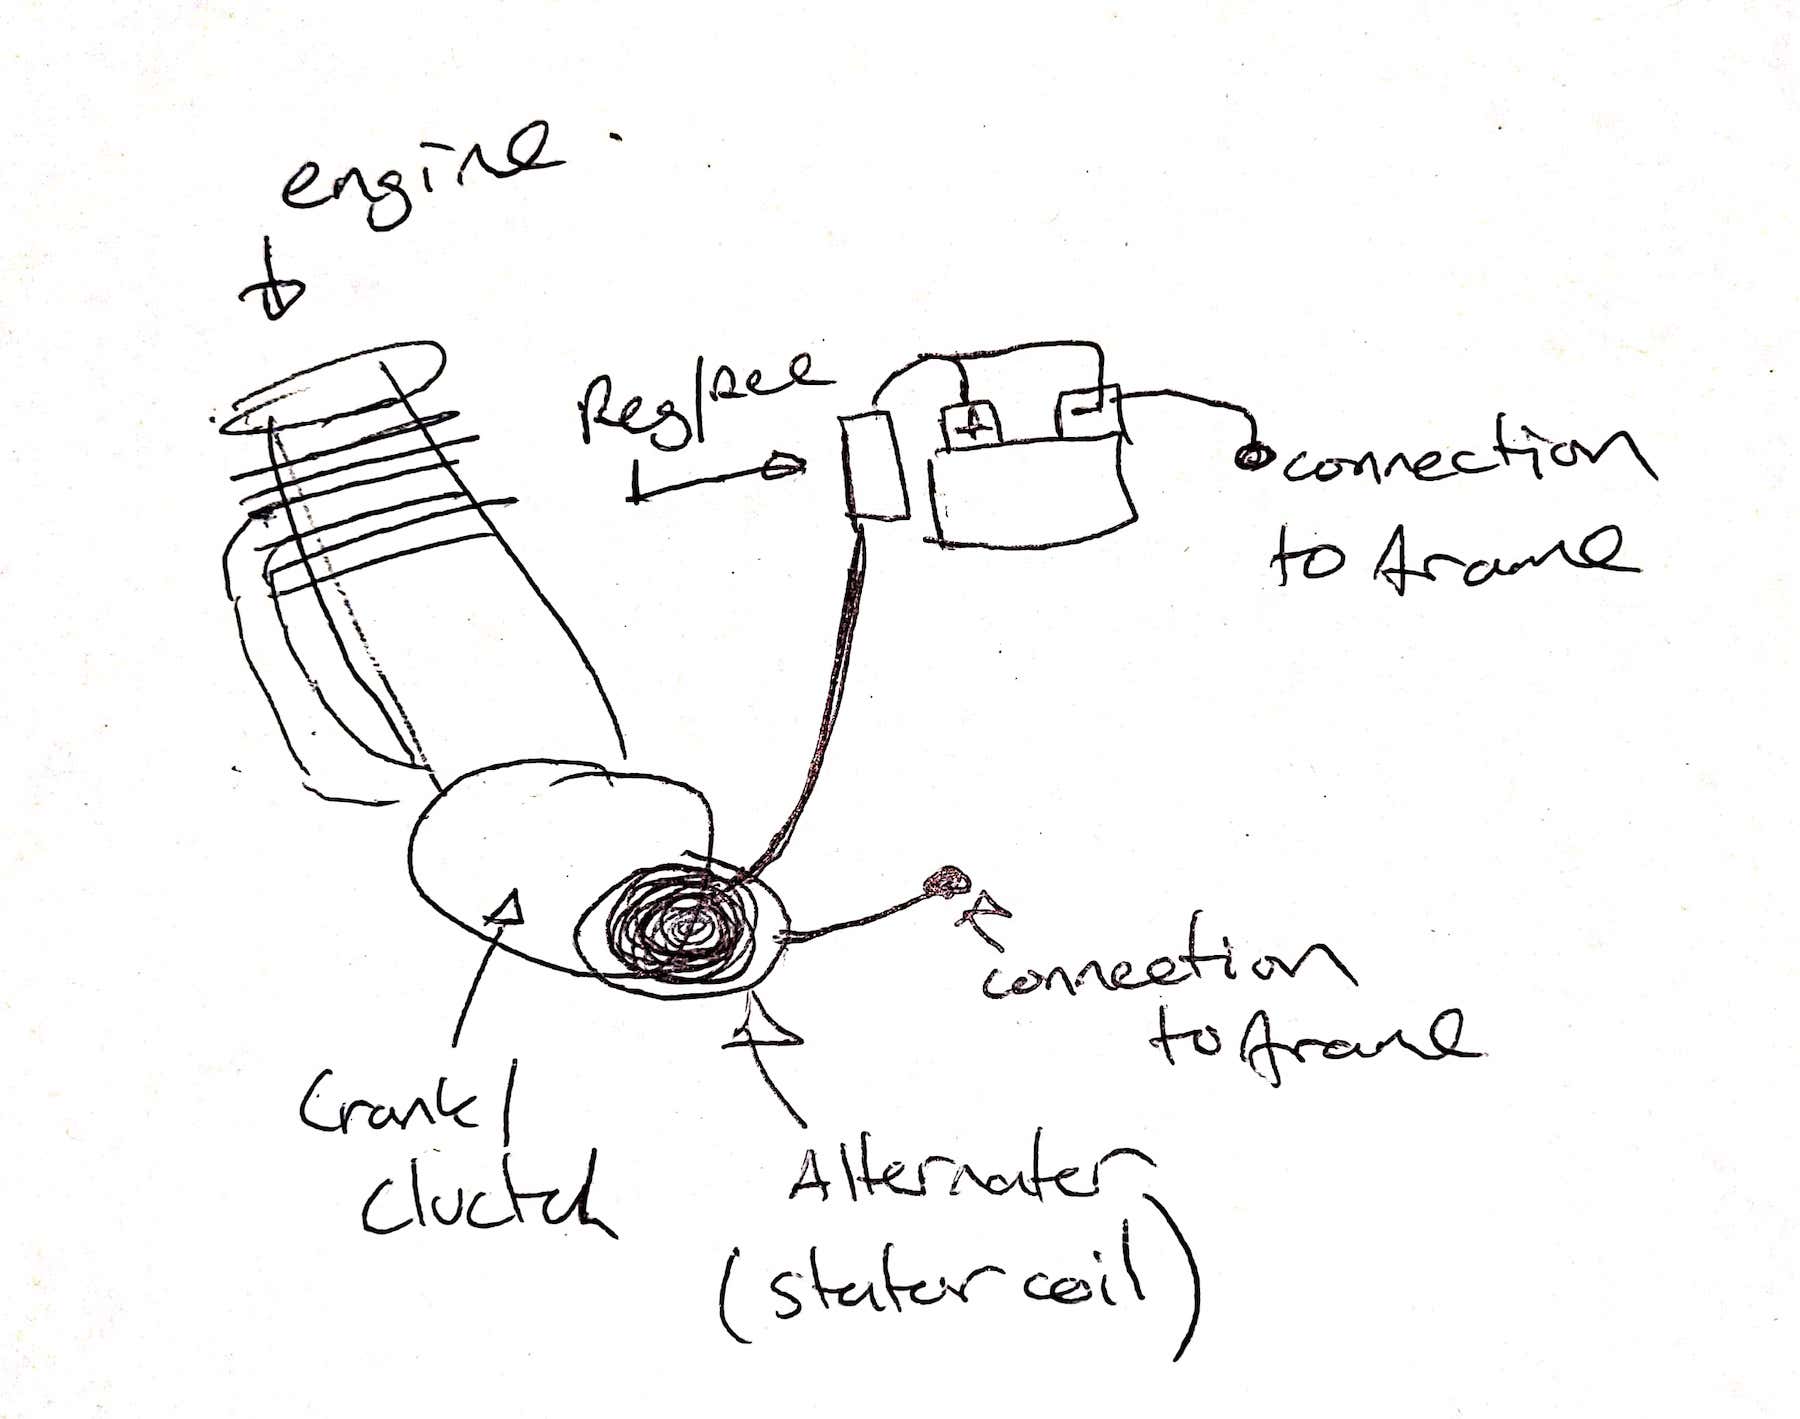 engine
Reg/Rec
+
-
connection
to frame
connection
to frame
Crank/
Cluctch
Alternater
(stator coil)